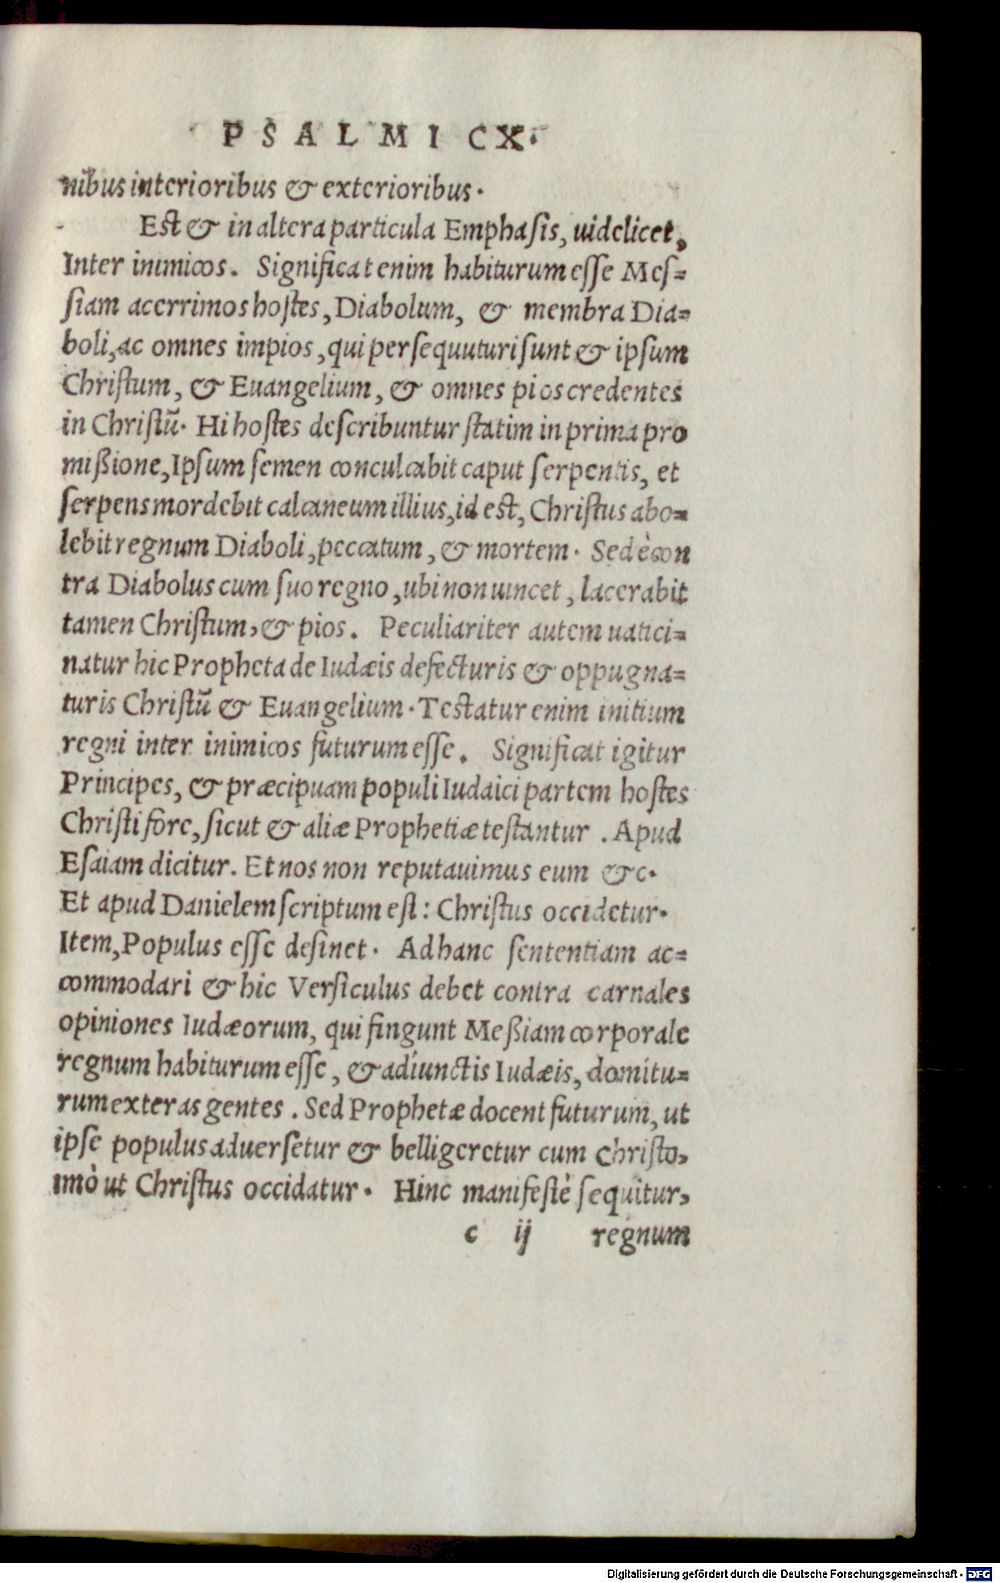 PSALMI CX.
nibus interioribus & exterioribus.
Est & in altera particula Emphasis, uidelicet,
Inter inimicos. Significat enim habiturum esse Mes-
siam acerrimos hostes, Diabolum, & membra Dia-
boli, ac omnes impios, qui persequuturi sunt & ipsum
Christum, & Euangelium, & omnes pios credentes
in Christū. Hi hostes describuntur statim in prima pro
mißione, Ipsum semen conculcabit caput serpentis, et
serpens mordebit calcaneum illius, id est, Christus abo-
lebit regnum Diaboli, peccatum, & mortem. Sed è con
tra Diabolus cum suo regno, ubi non uincet, lacerabit
tamen Christum, & pios. Peculiariter autem uatici-
natur hic Propheta de Iudæis defecturis & oppugna-
turis Christū & Euangelium. Testatur enim initium
regni inter inimicos futurum esse. Significat igitur
Principes, & præcipuam populi Iudaici partem hostes
Christi fore, sicut & aliæ Prophetiæ testantur. Apud
Esaiam dicitur. Et nos non reputauimus eum &c.
Et apud Danielem scriptum est: Christus occidetur.
Item, Populus esse desinet. Ad hanc sententiam ac-
commodari & hic Versiculus debet contra carnales
opiniones Iudæorum, qui fingunt Meßiam corporale
regnum habiturum esse, & adiunctis Iudæis, domitu-
rum exteras gentes. Sed Prophetæ docent futurum, ut
ipse populus aduersetur & belligeretur cum Christo,
imò ut Christus occidatur. Hinc manifestè sequitur,
c ij regnum
Digitalisierung gefördert durch die Deutsche Forschungsgemeinschaft - DFG